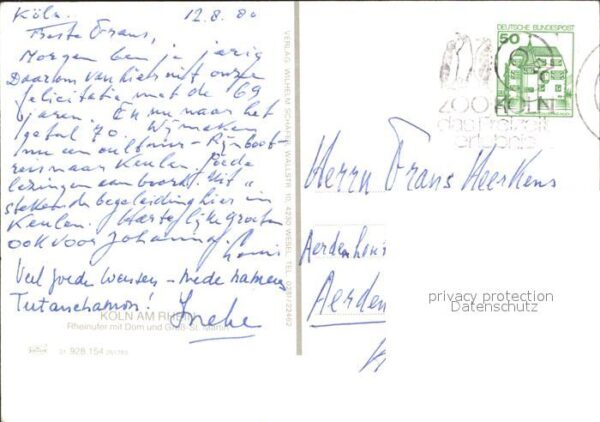 Köln. 12.8.80
Beste Frans,
Morgen ben je jarig
Daarom van hier uit onze
felicitatie met de 69
jaren. En nu naar het
getal 70. Wij maken
nu een cultuur - Rijnboot-
reis naar Keulen. Goede
lezingen aan boord. Uit -
stekende begeleiding hier in
Keulen. Hartelijke groeten
ook voor Johanna.
Louis
Veel goede wensen - mede namens
Tutanchamon! Ineke
KÖLN AM RHEIN
Rheinufer mit Dom und Groß-St. Martin
51 928.154
VERLAG: WILHELM SCHÄFER, WALLSTR. 10, 4230 WESEL, TEL. 0281/22462
DEUTSCHE BUNDESPOST
50
ZOO KÖLN
das Freizeit
erlebnis
Herrn Frans Heerkens
Aerdenhous
Aerden
privacy protection
Datenschutz